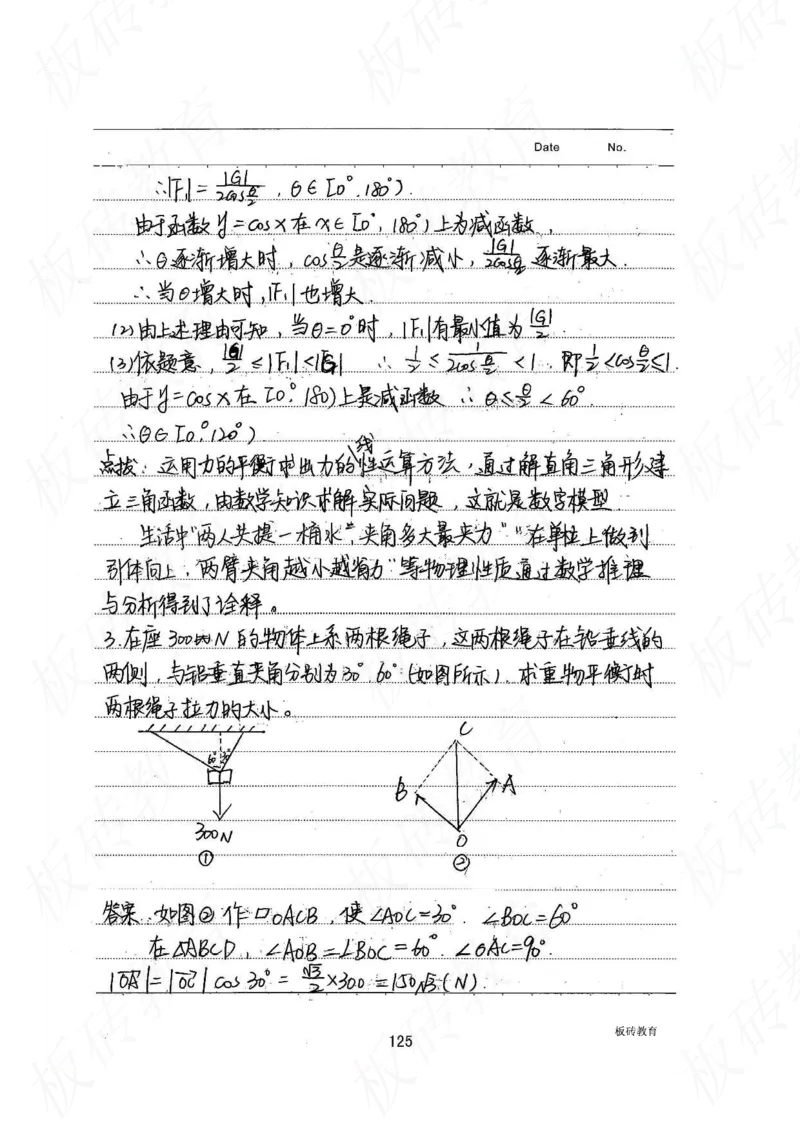 Date No.
∴|F₁| = |G|/(2cos θ/2) , θ∈[0°,180°).
由于函数 y=cosx 在 x∈[0°,180°)上为减函数,
∴θ逐渐增大时, cos θ/2 是逐渐减小, |G|/(2cos θ/2) 逐渐最大.
∴当θ增大时, |F₁|也增大.
(2)由上述理由可知, 当θ=0°时, |F₁|有最小值为 |G|/2.
(3)依题意, |G|/2 ≤|F₁|<|G| ∴ 1/2 ≤ 1/(2cos θ/2) <1. 即 1/2 <cos θ/2 ≤1.
由于y=cosx在[0°,180)上是减函数 ∴ 0≤ θ/2 < 60°.
∴θ∈[0°,120°)
点拨: 运用力的平衡求出力的线性运算方法, 通过解直角三角形建
立三角函数, 由数学知识求解实际问题, 这就是数学模型.
生活中"两人共提一桶水", 夹角多大最夹力" "在单杠上做到
引体向上, "两臂夹角越小越省力"等物理性质通过数学推理
与分析得到了诠释。
3.在座300N的物体上系两根绳子, 这两根绳子在铅垂线的
两侧, 与铅垂直夹角分别为30° 60° (如图所示), 求重物平衡时
两根绳子拉力的大小。
60° 30°
300N
①
C
B A
O
②
答案: 如图②作▱OACB, 使∠AOC=30°. ∠BOC=60°
在△ABCD, ∠AOB=∠BOC=60°. ∠OAC=90°.
|OA|=|OC| cos30° = √3/2 ×300 =150√3(N).
125
板砖教育